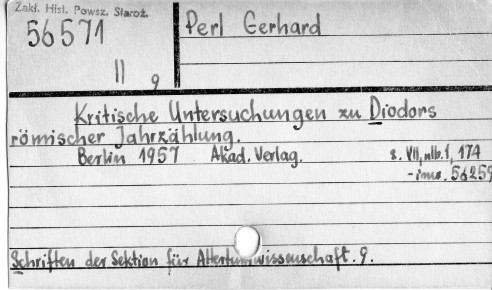 Zakł. Hist. Powsz. Staroż.
56571
II 9
Perl Gerhard
Kritische Untersuchungen zu Diodors
römischer Jahrzählung.
Berlin 1957 Akad. Verlag. s. VII, nlb. 1, 174
-inw. 56259
Schriften der Sektion für Altertumwissenschaft. 9.